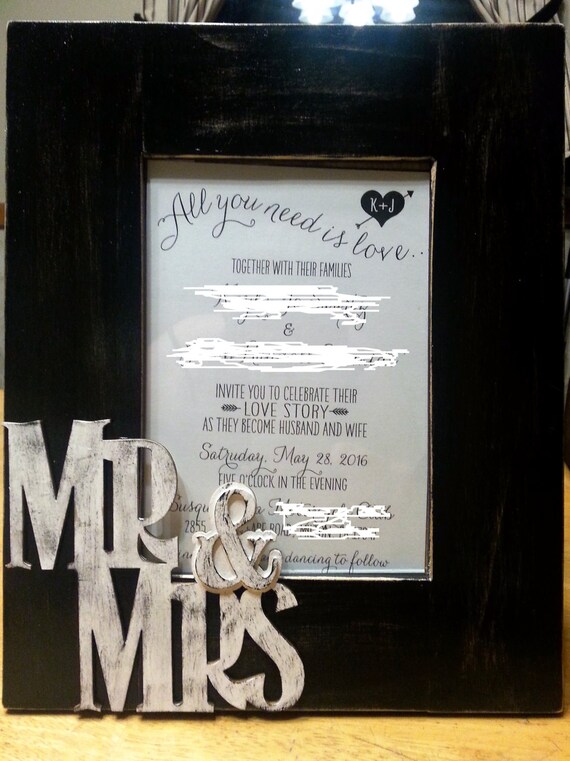 All you need is love..
K+J
TOGETHER WITH THEIR FAMILIES
&
INVITE YOU TO CELEBRATE THEIR
LOVE STORY
AS THEY BECOME HUSBAND AND WIFE
Satruday, May 28, 2016
FIVE O'CLOCK IN THE EVENING
2855
dancing to follow
MR
&
MRS